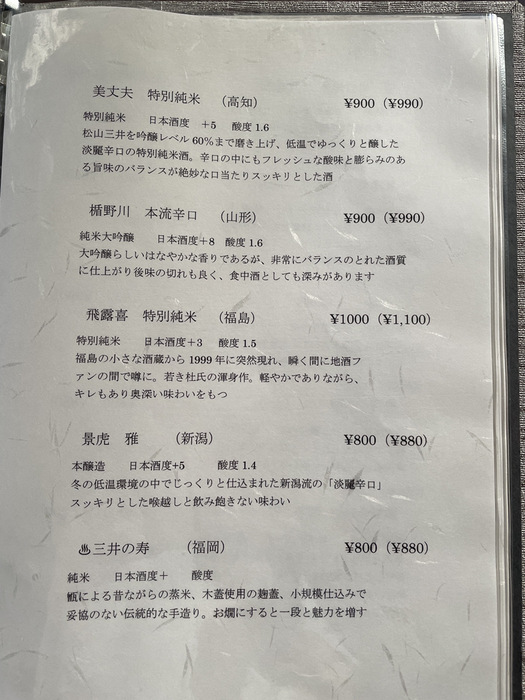 美丈夫　特別純米　（高知）　¥900（¥990）
特別純米　日本酒度　+5　酸度 1.6
松山三井を吟醸レベル 60%まで磨き上げ、低温でゆっくりと醸した
淡麗辛口の特別純米酒。辛口の中にもフレッシュな酸味と膨らみのあ
る旨味のバランスが絶妙な口当たりスッキリとした酒
楯野川　本流辛口　（山形）　¥900（¥990）
純米大吟醸　日本酒度+8　酸度 1.6
大吟醸らしいはなやかな香りであるが、非常にバランスのとれた酒質
に仕上がり後味の切れも良く、食中酒としても深みがあります
飛露喜　特別純米　（福島）　¥1000（¥1,100）
特別純米　日本酒度+3　酸度 1.5
福島の小さな酒蔵から 1999 年に突然現れ、瞬く間に地酒フ
ァンの間で噂に。若き杜氏の渾身作。軽やかでありながら、
キレもあり奥深い味わいをもつ
景虎　雅　（新潟）　¥800（¥880）
本醸造　日本酒度+5　酸度 1.4
冬の低温環境の中でじっくりと仕込まれた新潟流の「淡麗辛口」
スッキリとした喉越しと飲み飽きない味わい
♨三井の寿　（福岡）　¥800（¥880）
純米　日本酒度＋　酸度
甑による昔ながらの蒸米、木蓋使用の麹蓋、小規模仕込みで
妥協のない伝統的な手造り。お燗にすると一段と魅力を増す